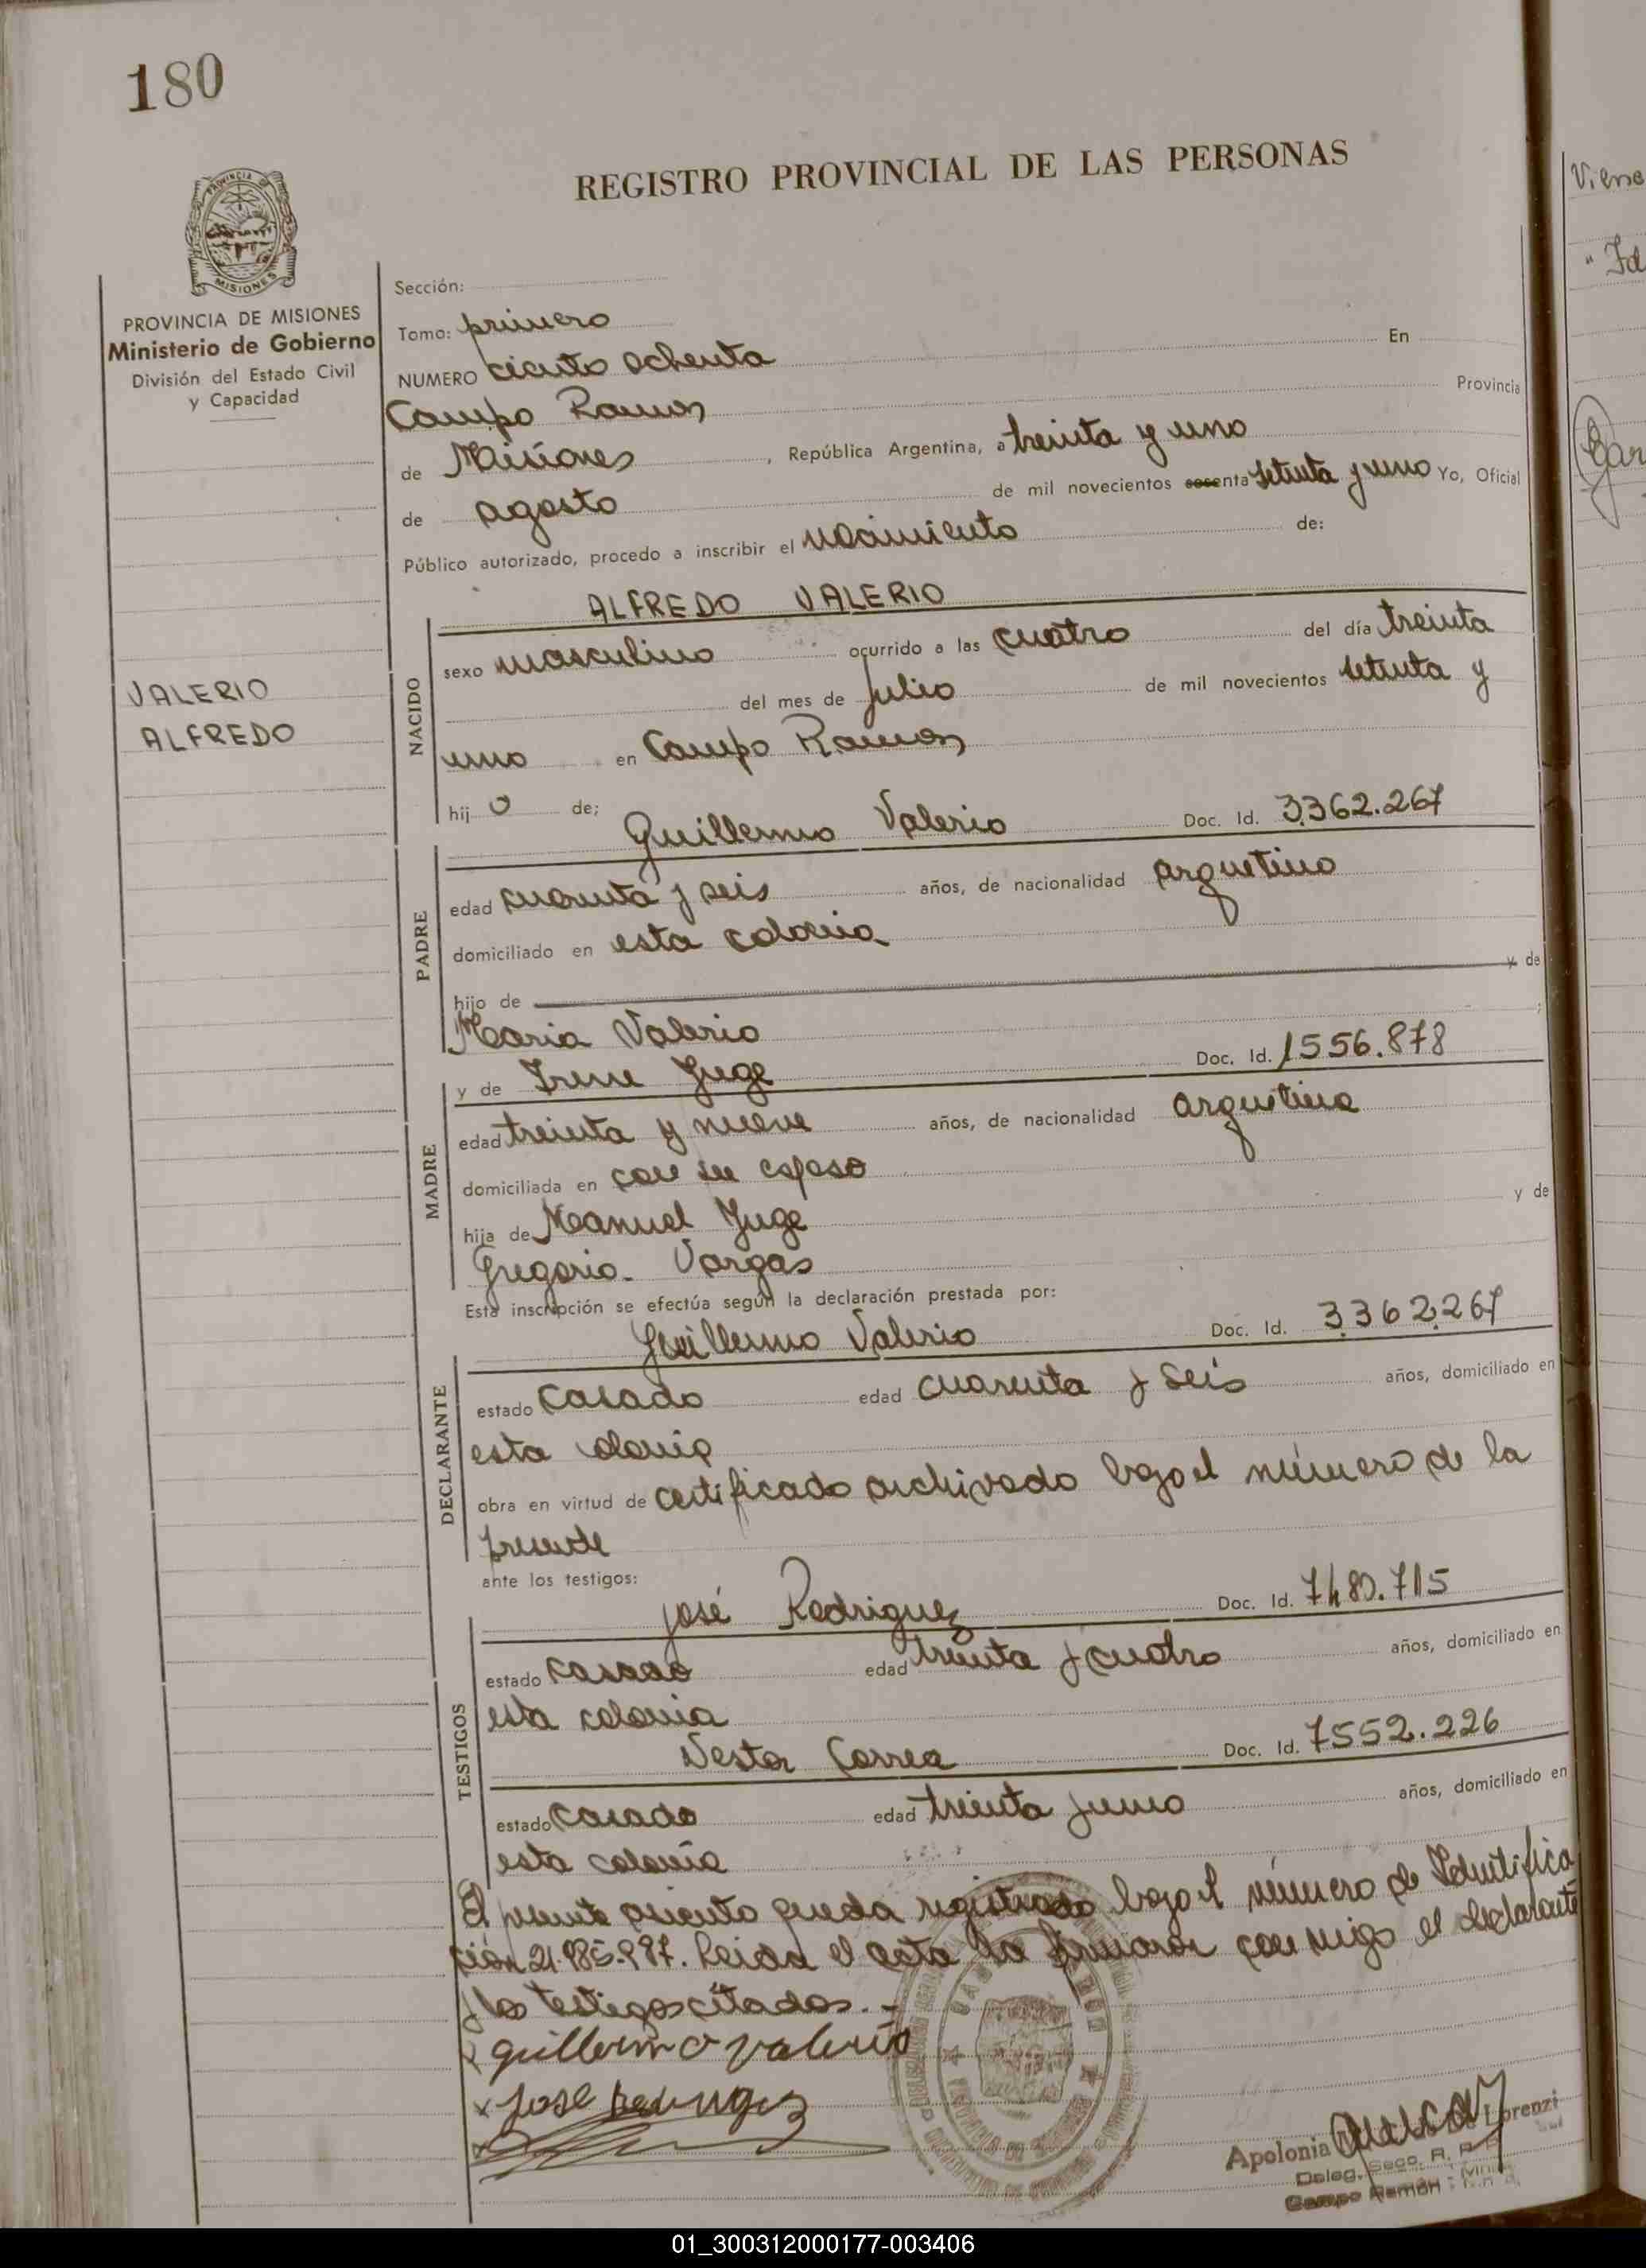 180
REGISTRO PROVINCIAL DE LAS PERSONAS
PROVINCIA DE
MISIONES
PROVINCIA DE MISIONES
Ministerio de Gobierno
División del Estado Civil
y Capacidad
VALERIO
ALFREDO
Sección:
Tomo: primero
NUMERO ciento ochenta En
Campo Ramon Provincia
de Misiones , República Argentina, a treinta y uno
de agosto de mil novecientos sesenta setenta y uno Yo, Oficial
Público autorizado, procedo a inscribir el nacimiento de:
ALFREDO VALERIO
NACIDO
sexo masculino ocurrido a las cuatro del día treinta
del mes de julio de mil novecientos setenta y
uno en Campo Ramon
hij o de;
Guillermo Valerio Doc. Id. 3.362.267
PADRE
edad cuarenta y seis años, de nacionalidad argentino
domiciliado en esta colonia
hijo de y de
Maria Valerio ;
y de Irene Yuge Doc. Id. 1556.878
MADRE
edad treinta y nueve años, de nacionalidad argentina
domiciliada en con su esposo
hija de Manuel Yuge y de
Gregoria Vargas
Esta inscripción se efectúa según la declaración prestada por:
Guillermo Valerio Doc. Id. 3.362.267
DECLARANTE
estado casado edad cuarenta y seis años, domiciliado en
esta colonia
obra en virtud de certificado archivado bajo el número de la
presente
ante los testigos:
José Rodriguez Doc. Id. 7480.715
TESTIGOS
estado casado edad treinta y cuatro años, domiciliado en
esta colonia
Nestor Correa Doc. Id. 7552.226
estado casado edad treinta y uno años, domiciliado en
esta colonia
El presente asiento queda registrado bajo el número de Identifica
ción 21.985.997. Leida el acta la firmaron conmigo el declarante
y los testigos citados. -
guillermo valerio
x Jose Redriguez
Apolonia Lorenzi
Deleg. Secc. R. P.
Campo Ramón
Viene
" Id
01_300312000177-003406